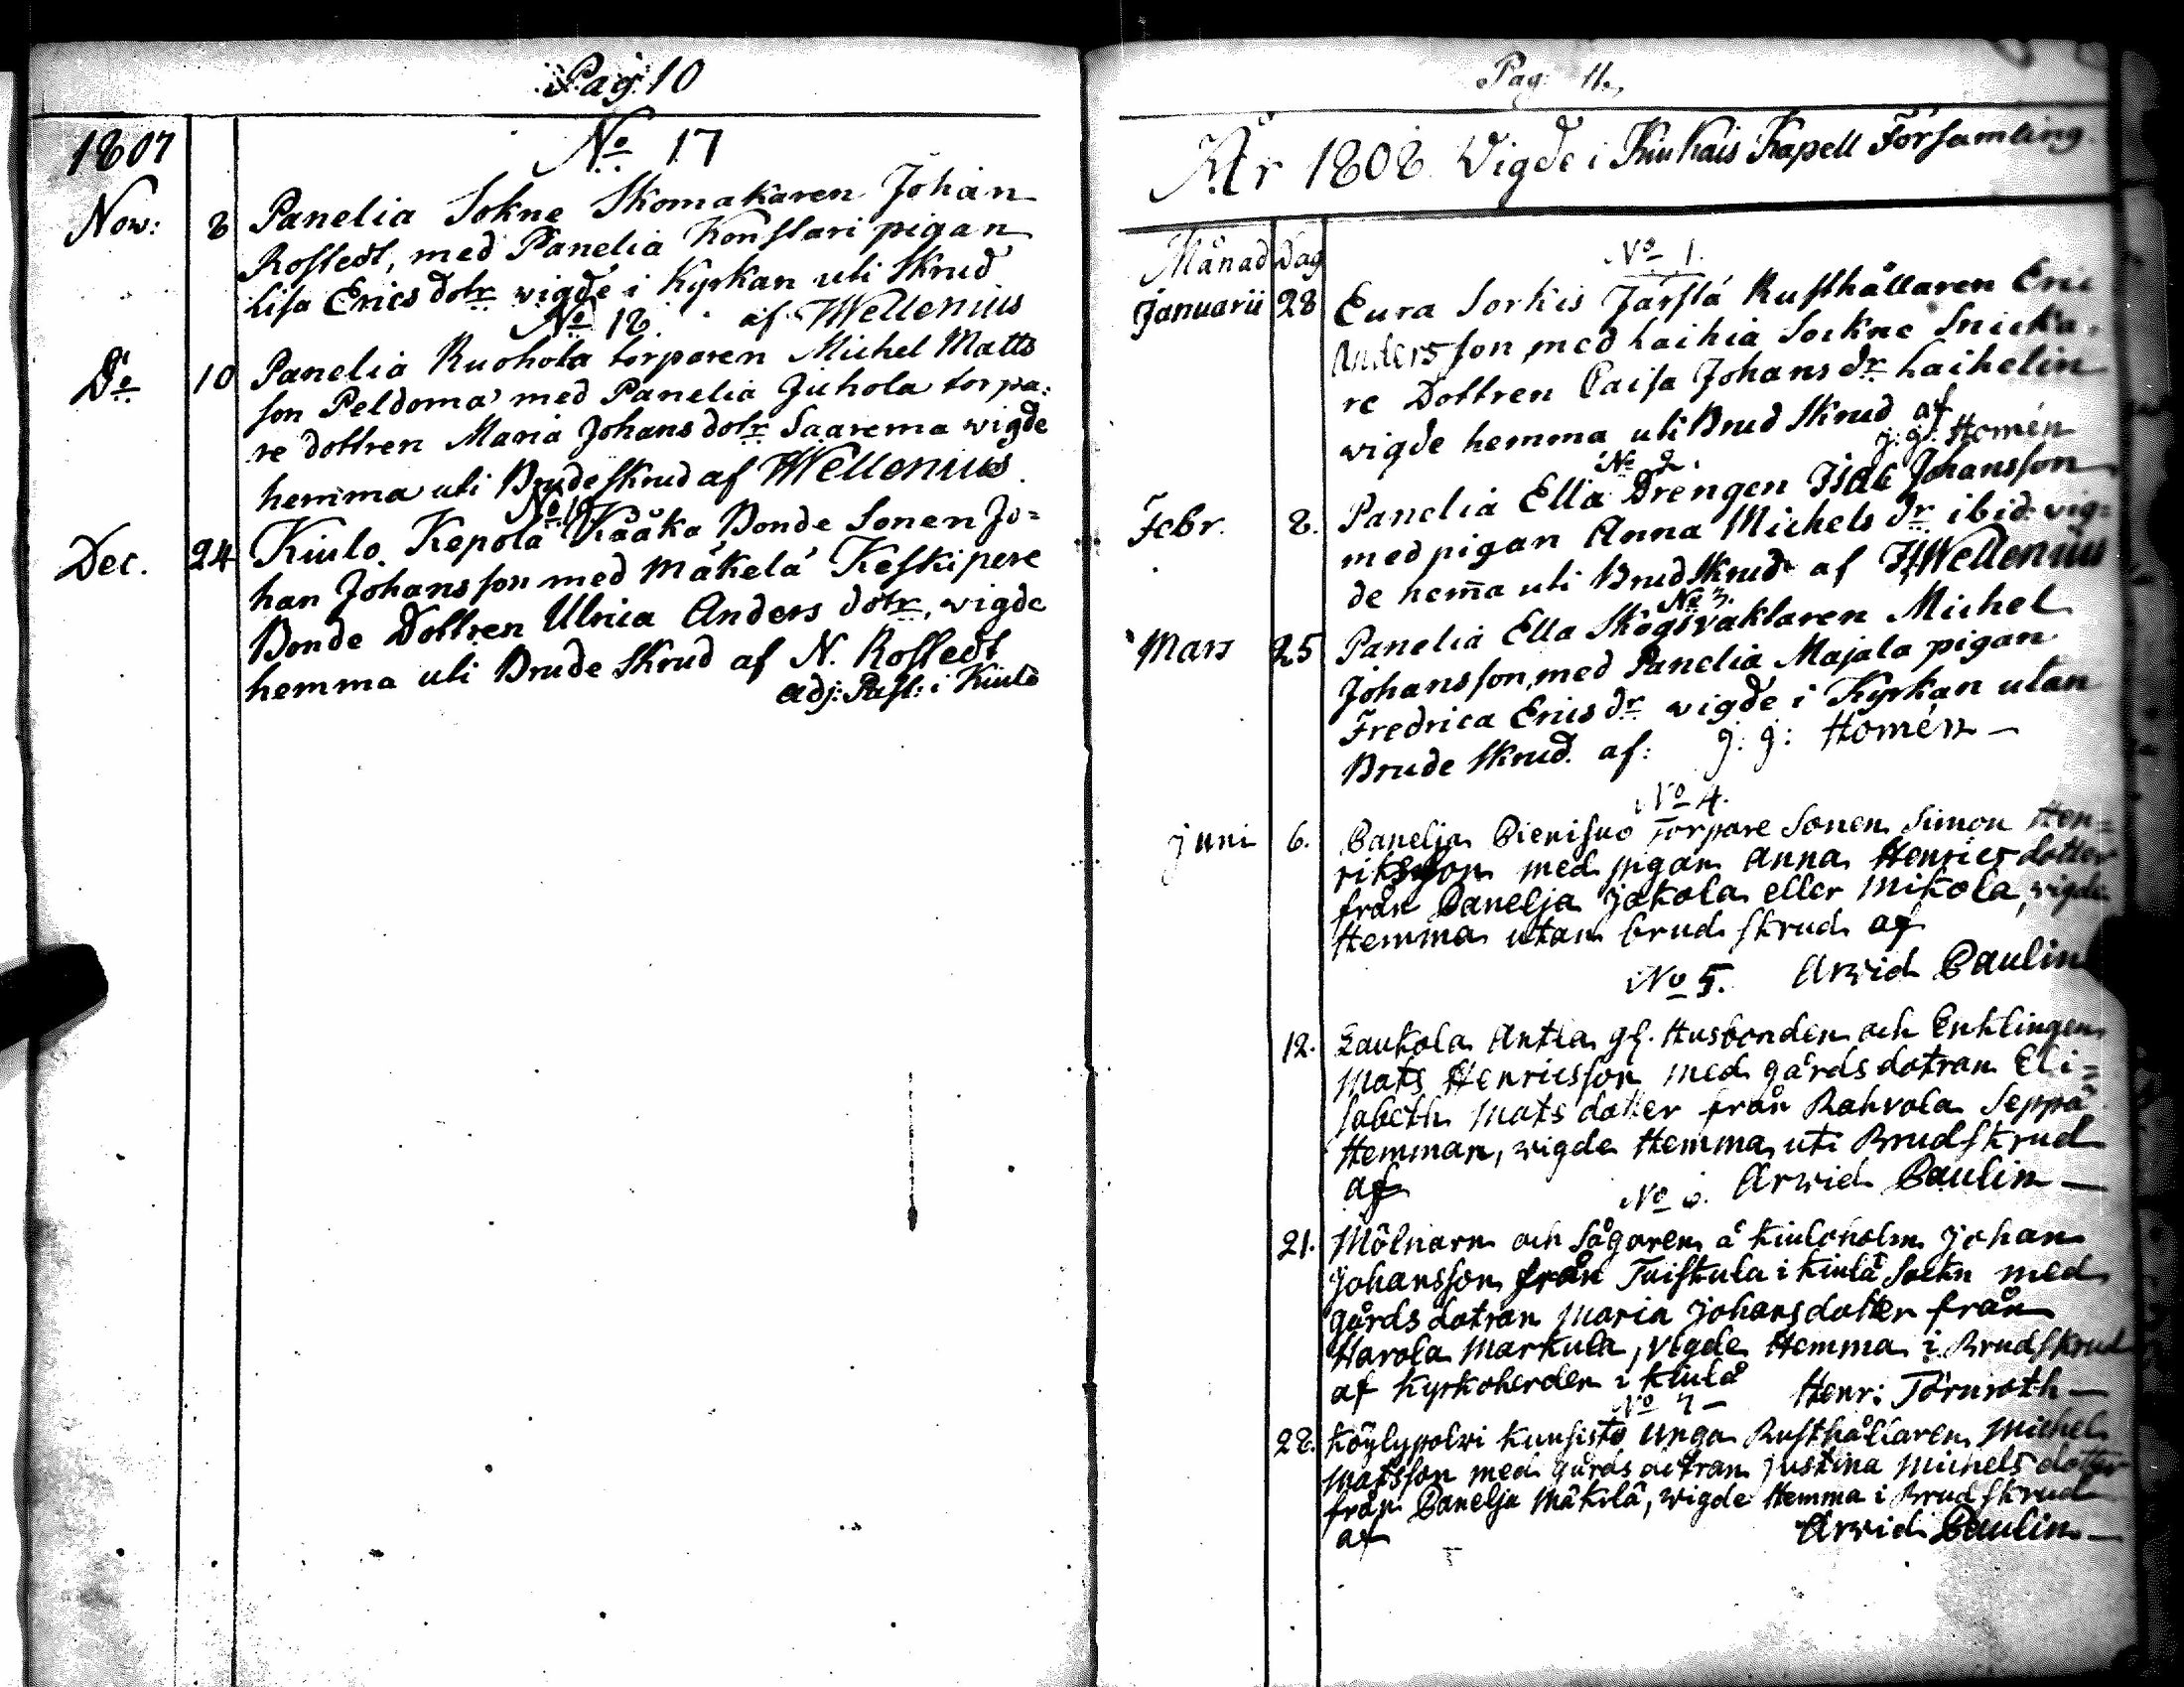 Pag: 10
1807
No 17
Nov: 8 Panelia Sokne Skomakaren Johan
Rostedt, med Panelia Konstari pigan
Lisa Ericsdotr vigde i Kyrkan uti Skrud
No 18. af Wellenius
Do 10 Panelia Ruohola torparen Michel Matts
son Peldoma med Panelia Juhola torpa:
re dottren Maria Johansdotr Saarema vigde
hemma uti Brudeskrud af Wellenius
No 19
Dec. 24 Kiulo Kepola Kååka Bonde Sonen Jo=
han Johansson med Mäkelä Keskipere
Bonde Dottren Ulrica Anders dotr, vigde
hemma uti Brude Skrud af N. Rostedt
adj: Past: i Kiulo
Pag: 11.
År 1808 Vigde i Kiukais Kapell Församling
Månad Dag
No 1.
Januarii 28 Eura Sorkis Jarsta Rusthållaren Eric
Andersson, med Laihia Sockne Snicka=
re Dottren Caisa Johans dr Laihelin
vigde hemma uti Brud Skrud af
J: G: Homén
No 2.
Febr. 8. Panelia Ella Drengen Isac Johansson
med pigan Anna Michels dr ibid: vig=
de hem̄a uti Brudskrud af Wellenius
No 3.
Mars 25 Panelia Ella Skogsvaktaren Michel
Johansson, med Panelia Majala pigan
Fredrica Erics dr vigde i Kyrkan utan
Brude Skrud. af: J: G: Homén
No 4.
Juni 6. Panelja Pienisuo Torpare Sonen Simon Hen=
riksson med pigan Anna Henricsdotter
från Panelja Jakola eller Mikola, vigde
Hemma utan brudskrud af
No 5. Arvid Paulin
12. Laukola Antla gf. Husbonden och Enklingen
Mats Henricsson med gårdsdotran Eli=
sabeth Matsdotter från Rahvola Seppä
Hemman, vigde Hemma uti Brudskrud
af Arvid Paulin
No 6.
21. Mölnarn och Sågaren å Kiuloholm Johan
Johansson från Tuiskula i Kiulå Sockn med
gårdsdotran Maria Johansdotter från
Harola Markula, Vigde Hemma i Brudskrud
af Kyrkoherden i Kiulå Henr: Törnroth
No 7
28. Köylypolvi Kuusisto unga Rusthållaren Michel
Matsson med gårdsdotran Justina Michelsdotter
från Panelja Mäkelä, vigde Hemma i Brudskrud
af Arvid Paulin